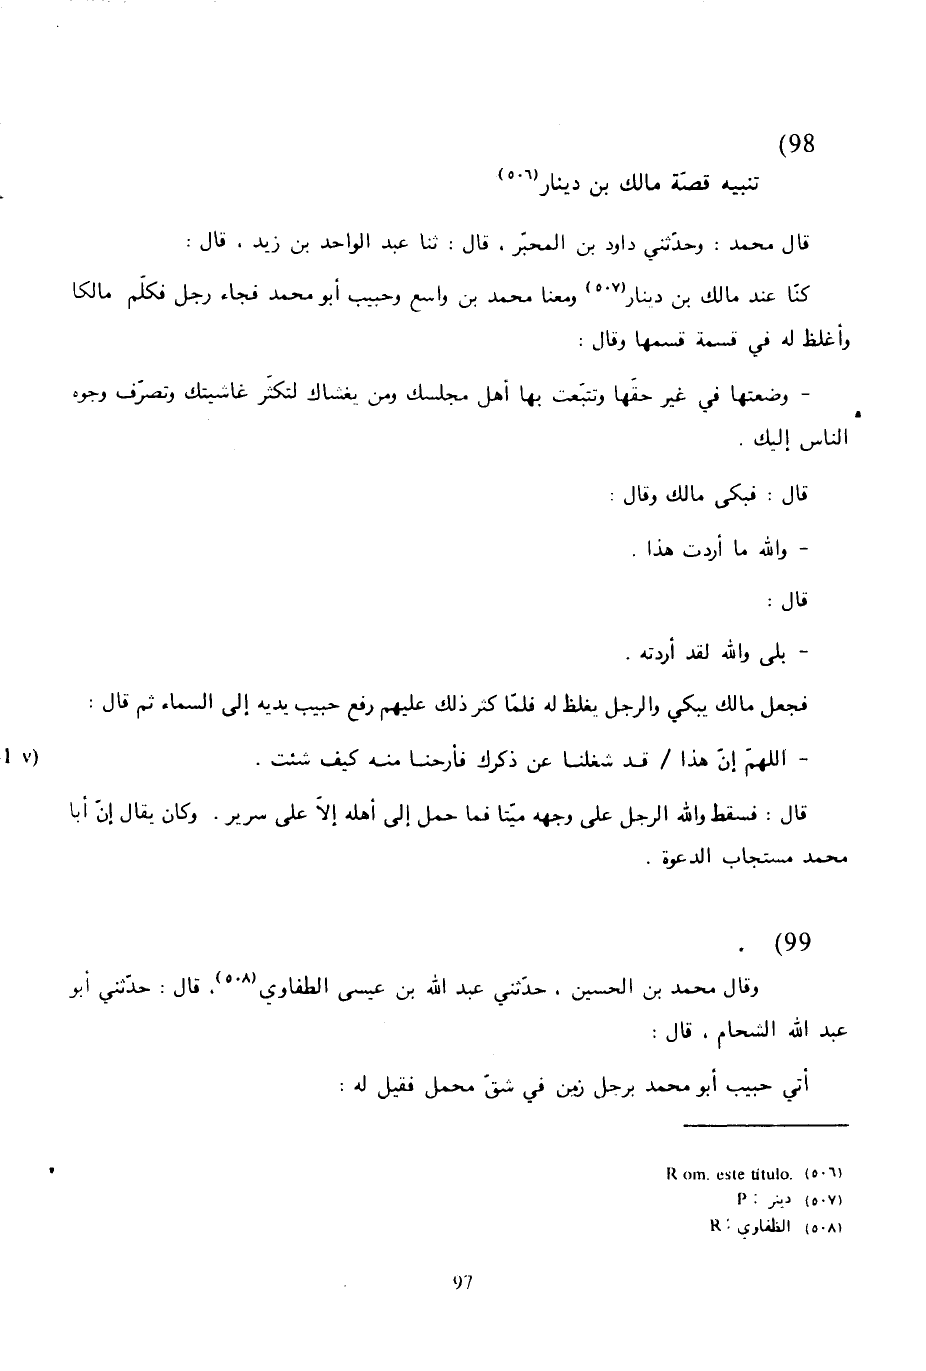 (98
تنبيه قصّة مالك بن دينار(٥٠٦)
قال محمد : وحدّثني داود بن المحبّر ، قال : ثنا عبد الواحد بن زيد ، قال :
كنّا عند مالك بن دينار(٥٠٧) ومعنا محمد بن واسع وحبيب أبو محمد فجاء رجل فكلّم مالكا
وأغلظ له في قسمة قسمها وقال :
- وضعتها في غير حقّها وتتبّعت بها أهل مجلسك ومن يغشاك لتكثّر غاشيتك وتصرّف وجوه
الناس إليك .
قال : فبكى مالك وقال :
- والله ما أردت هذا .
قال :
- بلى والله لقد أردته .
فجعل مالك يبكي والرجل يغلظ له فلمّا كثر ذلك عليهم رفع حبيب يديه إلى السماء ثم قال :
- اللهمّ إنّ هذا / قد شغلنا عن ذكرك فأرحنا منه كيف شئت .
قال : فسقط والله الرجل على وجهه ميّتا فما حمل إلى أهله إلاّ على سرير . وكان يقال إنّ أبا
محمد مستجاب الدعوة .
(99
وقال محمد بن الحسين ، حدّثني عبد الله بن عيسى الطفاوي(٥٠٨)، قال : حدّثني أبو
عبد الله الشحام ، قال :
أتي حبيب أبو محمد برجل زمِن في شقّ محمل فقيل له :
(٥٠٦) R om. este título.
(٥٠٧) دينر : P
(٥٠٨) الظفاري : R
97